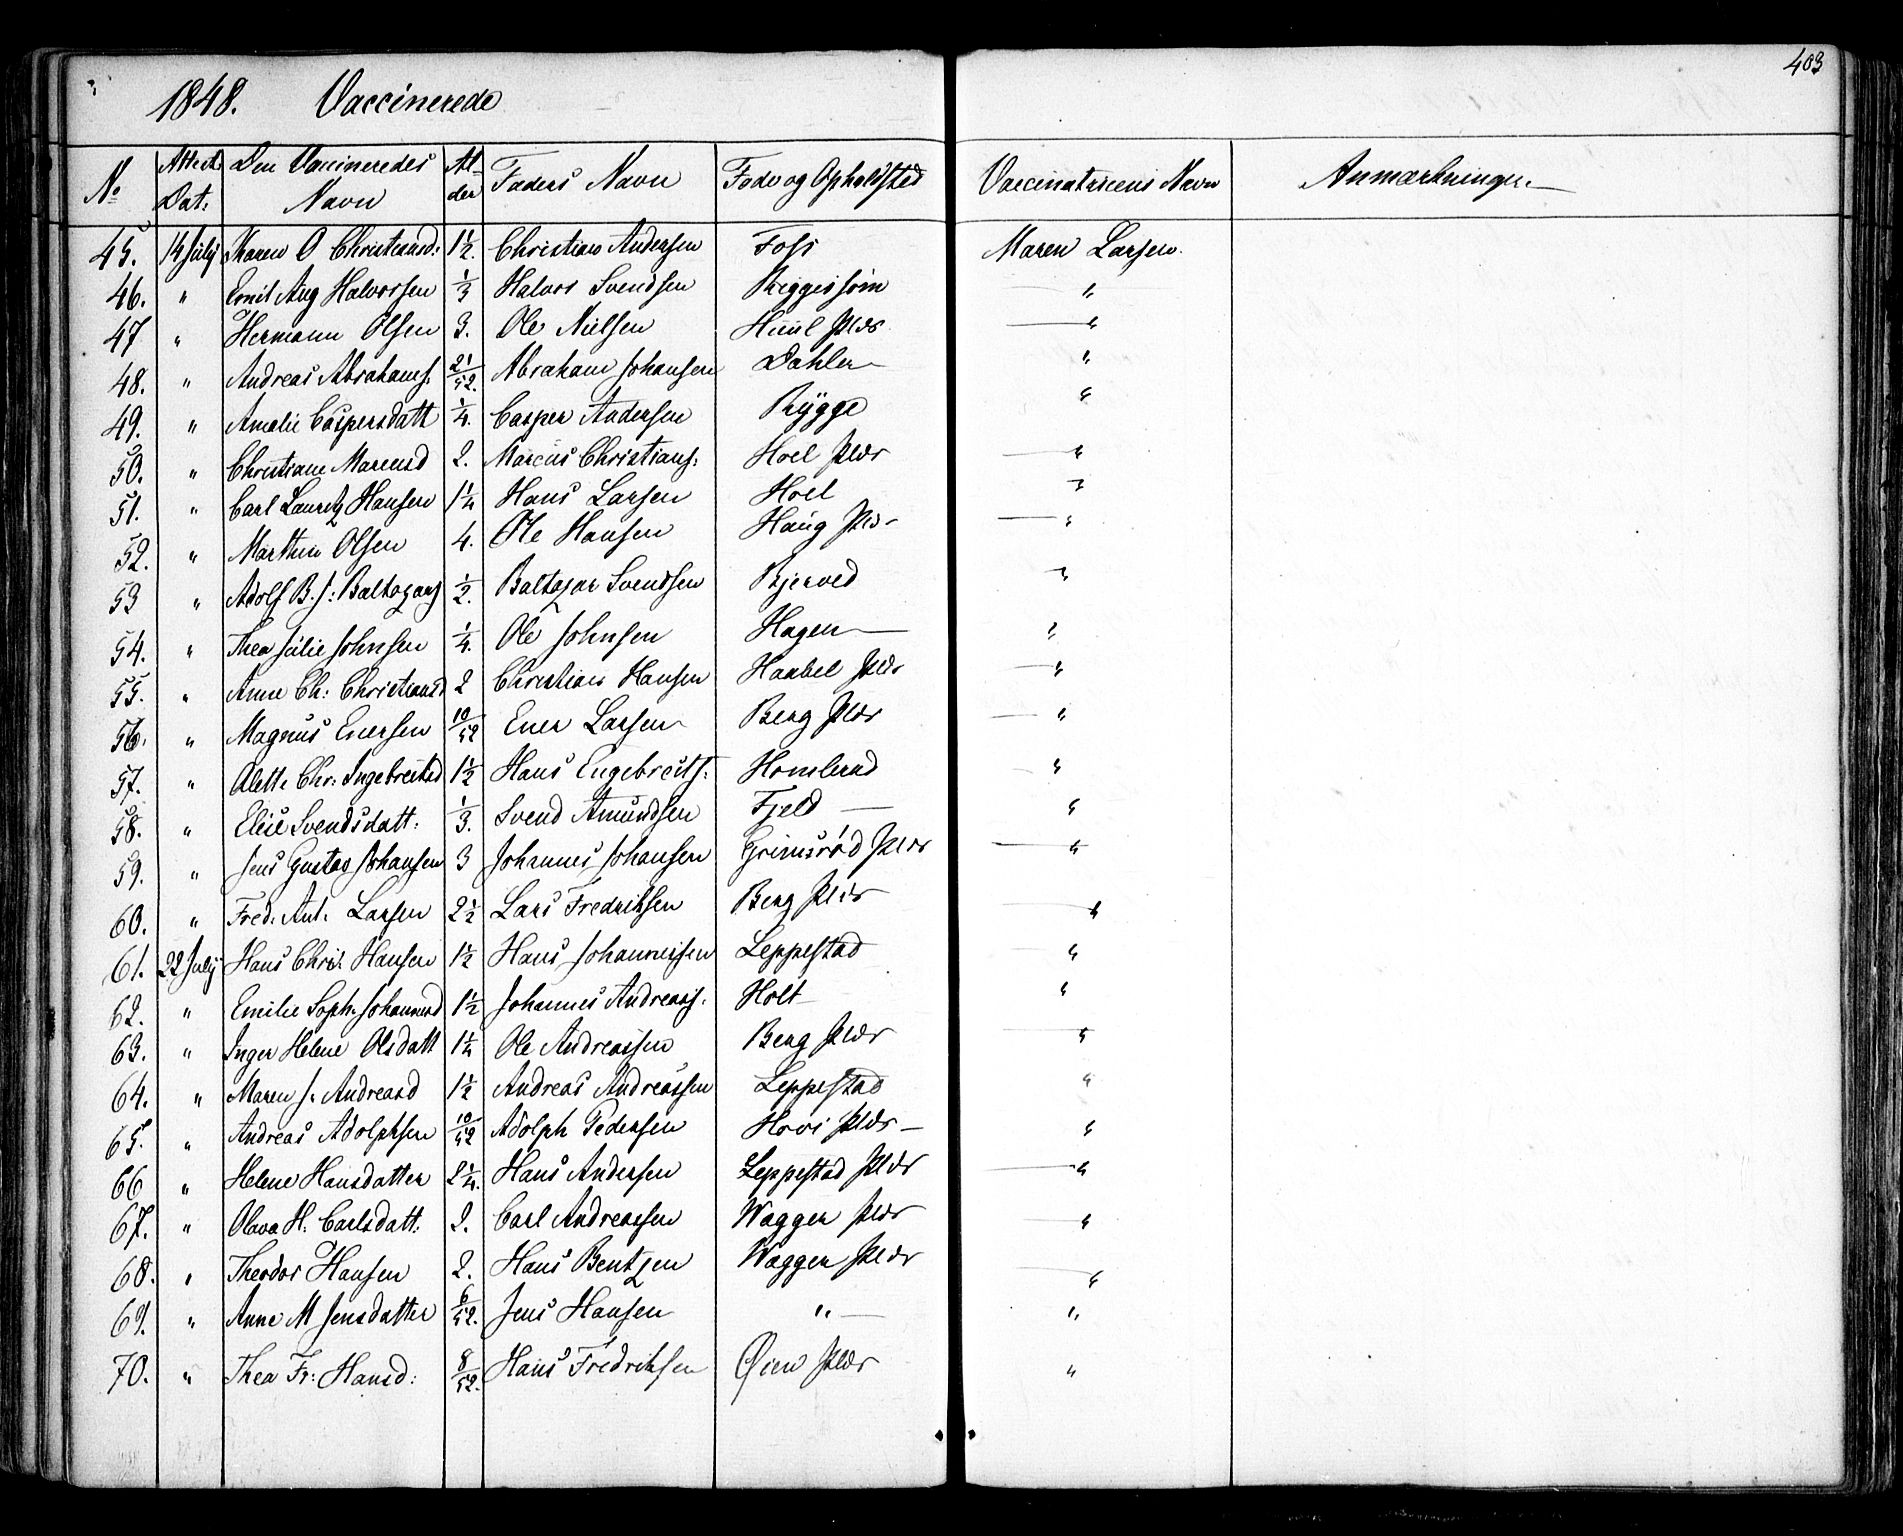 403
1848. Vaccinerede
No Attest. Dat: Den Vaccineredes Navn Alder Faders Navn Føde og Opholdsted Vaccinatricens Navn Anmærkninger.
45. 14 July Karen O Christiansd: 1 1/2. Christian Andersen Foss Maren Larsen.
46. " Emil Aug Halvorsen 1/3 Halvor Svendsen "
47 " Hermann Olsen 3. Ole Nielsen Huul Plds "
48. " Andreas Abrahams. 2 1/52. Abraham Johansen Dahler "
49. " Amalie Caspersdatt 1/4. Casper Andersen Rygge "
50. " Christiane Marcusd 2. Marcus Christians: Hoel Plds "
51. " Carl Lauritz Hansen 1 1/4 Hans Larsen Hoel "
52. " Marthin Olsen 4. Ole Hansen Haug Plds "
53 " Adolf B. S: Baltazars 1/2. Baltazar Svendsen Bjerved "
54. " Thea Julie Johnsen 1/4. Ole Johnsen Hagen "
55. " Anne Ch: Christiansd 2 Christian Hansen Haabel Plds "
56. " Magnus Enersen 10/52 Ener Larsen Berg Plds "
57. " Alette Chr: Ingebretsd 1 1/2 Hans Engebrets: "
58. " Elise Svendsdatt: 1/3. Svend Amundsen Fjeld "
59. " Jens Gustav Johansen 3 Johannes Johansen Grimsrød Plds "
60. " Fred. Ant. Larsen 2 1/2 Lars Fredriksen Berg Plds "
61. 22 July Hans Chri: Hansen 1 1/2 Hans Johannessen Leppestad "
62. " Emilie Soph. Johannesd 1 1/2 Johannes Andreass. Holt "
63. " Inger Helene Olsdatt 1 1/4 Ole Andreassen Berg Plds "
64. " Maren S. Andreasd 1 1/2 Andreas Andreassen Leppestad "
65. " Andreas Adolphsen 10/52 Adolph Pedersen Hovi Plds "
66 " Helene Hansdatter 2 1/4. Hans Andersen Leppestad Plds "
67. " Olava H: Carlsdatt: 2. Carl Andreassen Waggen Plds "
68. " Theodor Hansen 2. Hans Bentzen Waggen Plds "
69. " Anne M Jensdatter 6/52. Jens Hansen " "
70. " Thea Fr: Hansd: 8/52. Hans Fredriksen Øien Plds "